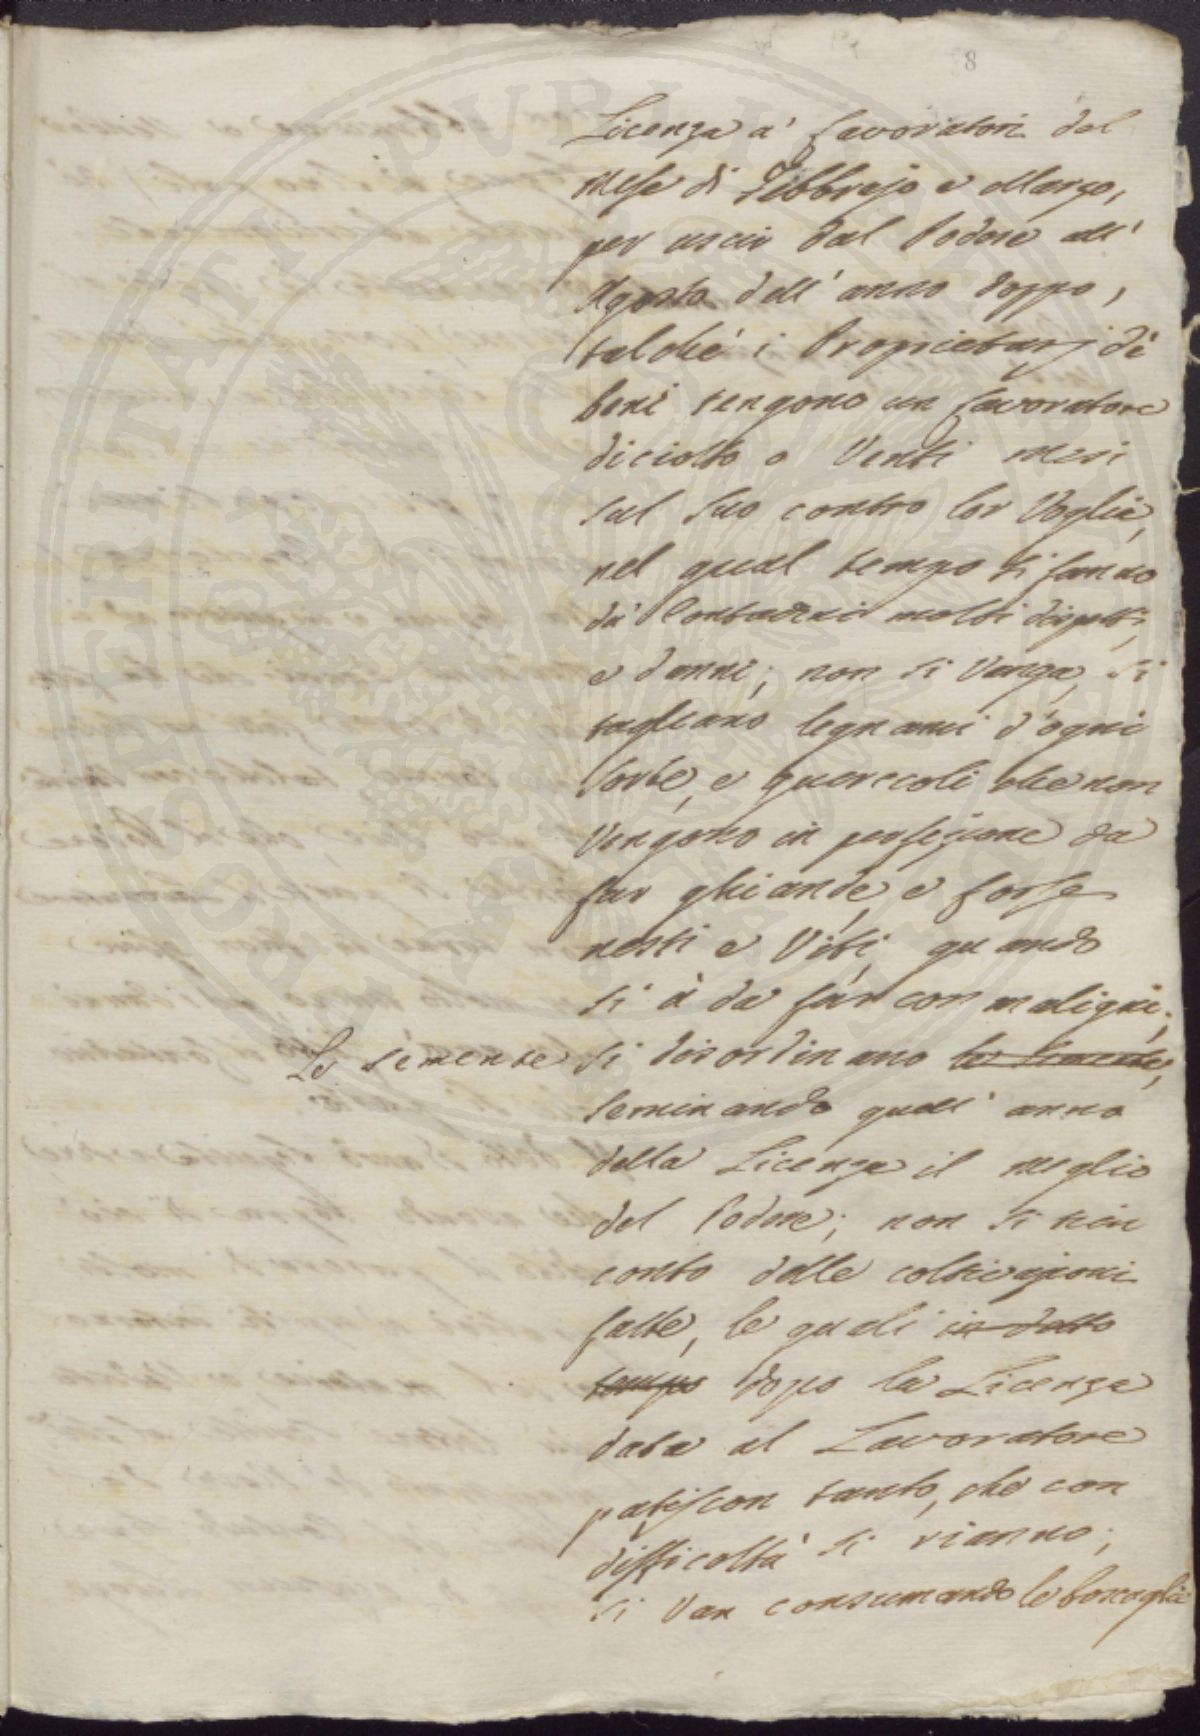 8
Licenza a' Lavoratori del
Mese di Febbrajo e Marzo,
per uscir dal Podere all'
Agosto dell' anno doppo,
talché i Proprietarj dè
beni tengono un Lavoratore
diciotto o Venti mesi
sul Suo contro lor Voglia,
nel qual tempo si fanno
dà Contadini molti dispetti,
e danni; non si Vanga, si
tagliano legnami d'ogni
Sorte, e querccoli che non
Vengono in perfezione da
far ghiande, e forse
nesti e Viti, quando
si à da far con maligni;
Le semente si disordinano le semente,
seminando quell' anno
della Licenza il meglio
del Podere; non si tien
conto delle coltivazioni
fatte, le quali in detto
tempo dopo la Licenza
data al Lavoratore
patiscon tanto, che con
difficoltà si rianno;
si Van consumando le boscaglie